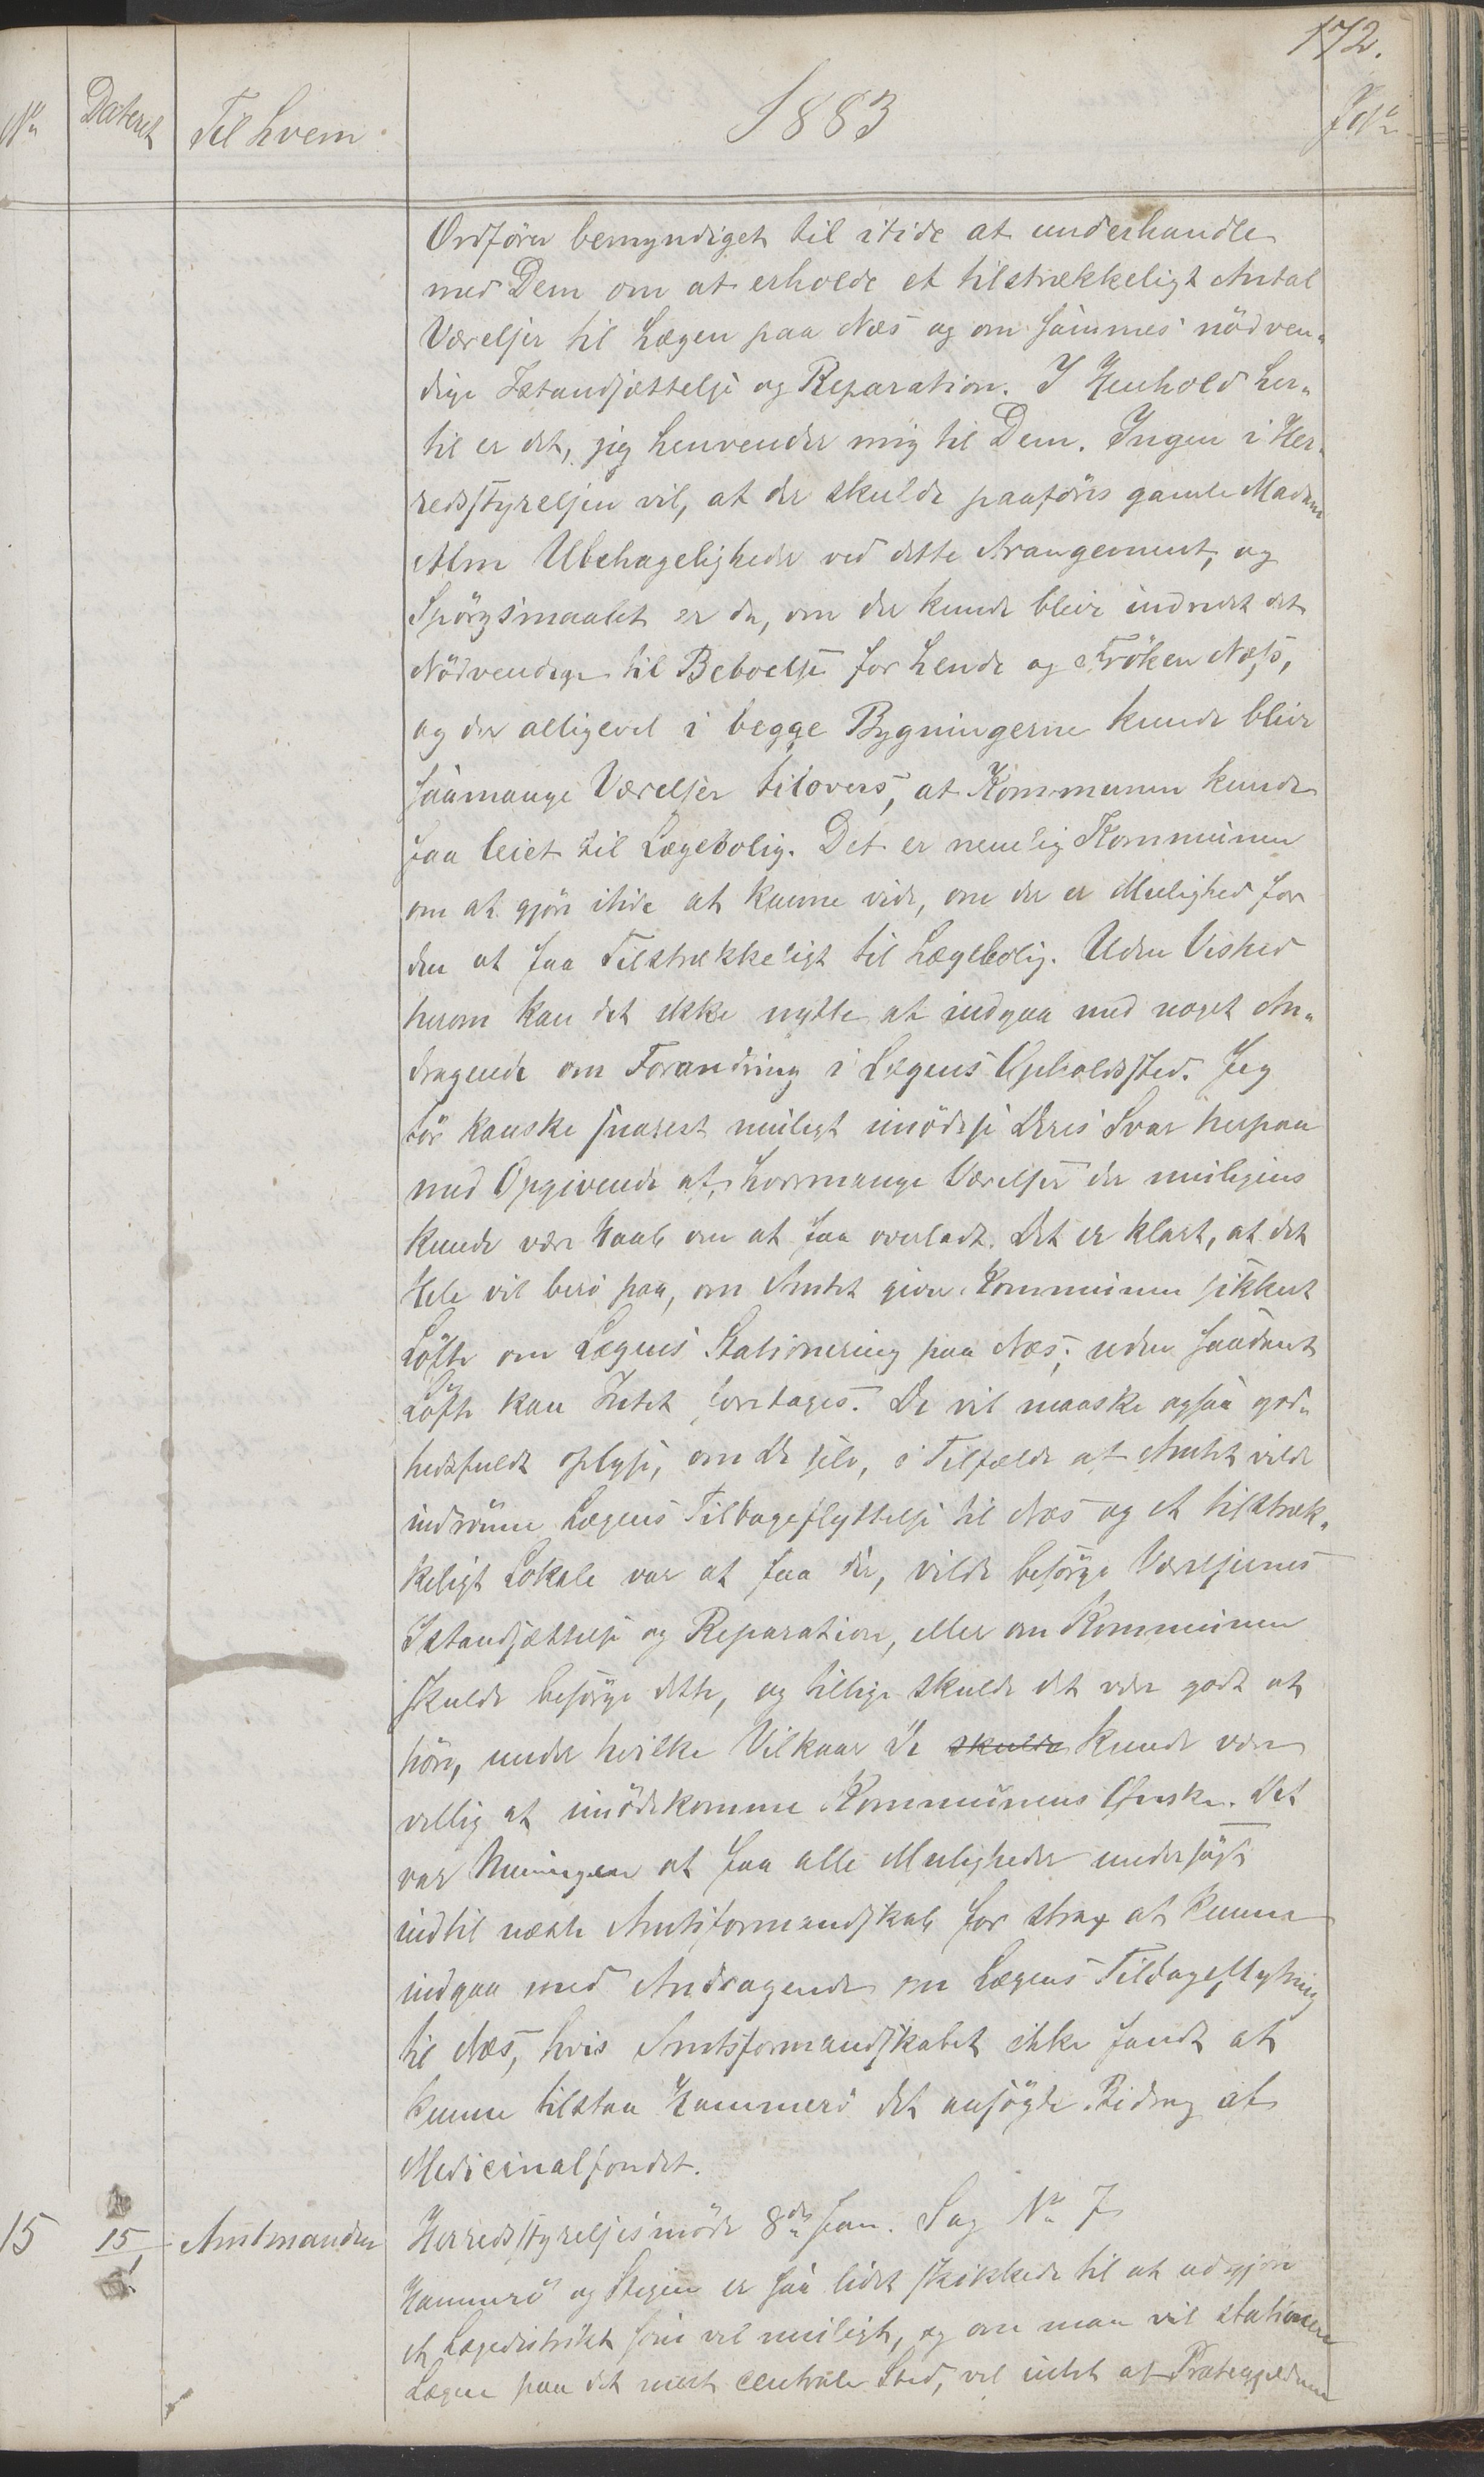 172.
Nr. Dateret Til hvem 1883 J.Nr.
Ordförer bemyndiget til itide at underhandle
med Dem om at erholde et tilstrækkeligt Antal
Værelser til Lægen paa Næs og om sammes nödven-
dige Istandsættelse og Reparation. I Henhold her-
til er det, jeg henvender mig til Dem. Ingen i Her-
redsstyrelsen vil, at der skulde paaföres gamle Madam
Alm Ubehageligheder ved dette Arangement, og
Spörgsmaalet er da, om der kunde blive indredet det
Nödvendige til Beboelse for hende og Fröken Næss,
og der alligevel i begge Bygningerne kunde blive
saamange Værelser tilovers, at Kommunen kunde
faa leiet til Lægebolig. Det er nemlig Kommunen
om at gjöre itide at kunne vide, om der er Mulighed for
den at faa Tilstrækkeligt til Lægebolig. Uden Vished
herom kan det ikke nytte at indgaa med noget An-
dragende om Forandring i Lægens Opholdssted. Jeg
tör kanske snarest muligt imödese Deres Svar herpaa
med Opgivende af, hvormange Værelser der muligens
kunde være Haab om at faa overladt. Det er klart, at det
Hele vil bero paa, om Amtet giver Kommunen sikkert
Löfte om Lægens Stationering paa Næs; uden saadant
Löfte kan Intet foretages. De vil maaske ogsaa god-
hedsfuldt oplyse, om De selv, i Tilfælde at Amtet vilde
indrömme Lægens Tilbageflyttelse til Næs og et tilstræk-
keligt Lokale var at faa der, vilde besörge Værelsernes
Istandsættelse og Reparation, eller om Kommunen
skulde besörge dette, og tillige skulde det være godt at
höre, under hvilke Vilkaar De skulde kunde være
villig at imödekomme Kommunens Ønske. Det
var Meningen at faa alle Muligheder undersögt
indtil næste Amtsformandskab for strax at kunne
indgaa med Andragende om Lægens Tilbageflytning
til Næs, hvis Amtsformandskabet ikke fandt at
kunne tilstaa Hammerö det ansögte Bidrag af
Medicinalfondet.
15 15/1 Amtmanden Herredsstyrelsesmöde 8de Jan. Sag No 7
Hammerö og Stegen er saa lidet skikkede til at udgjöre
et Lægedistrikt som vel muligt, og om man vil stationere
Lægen paa det mest centrale Sted, vil intet af Præstegjeldene